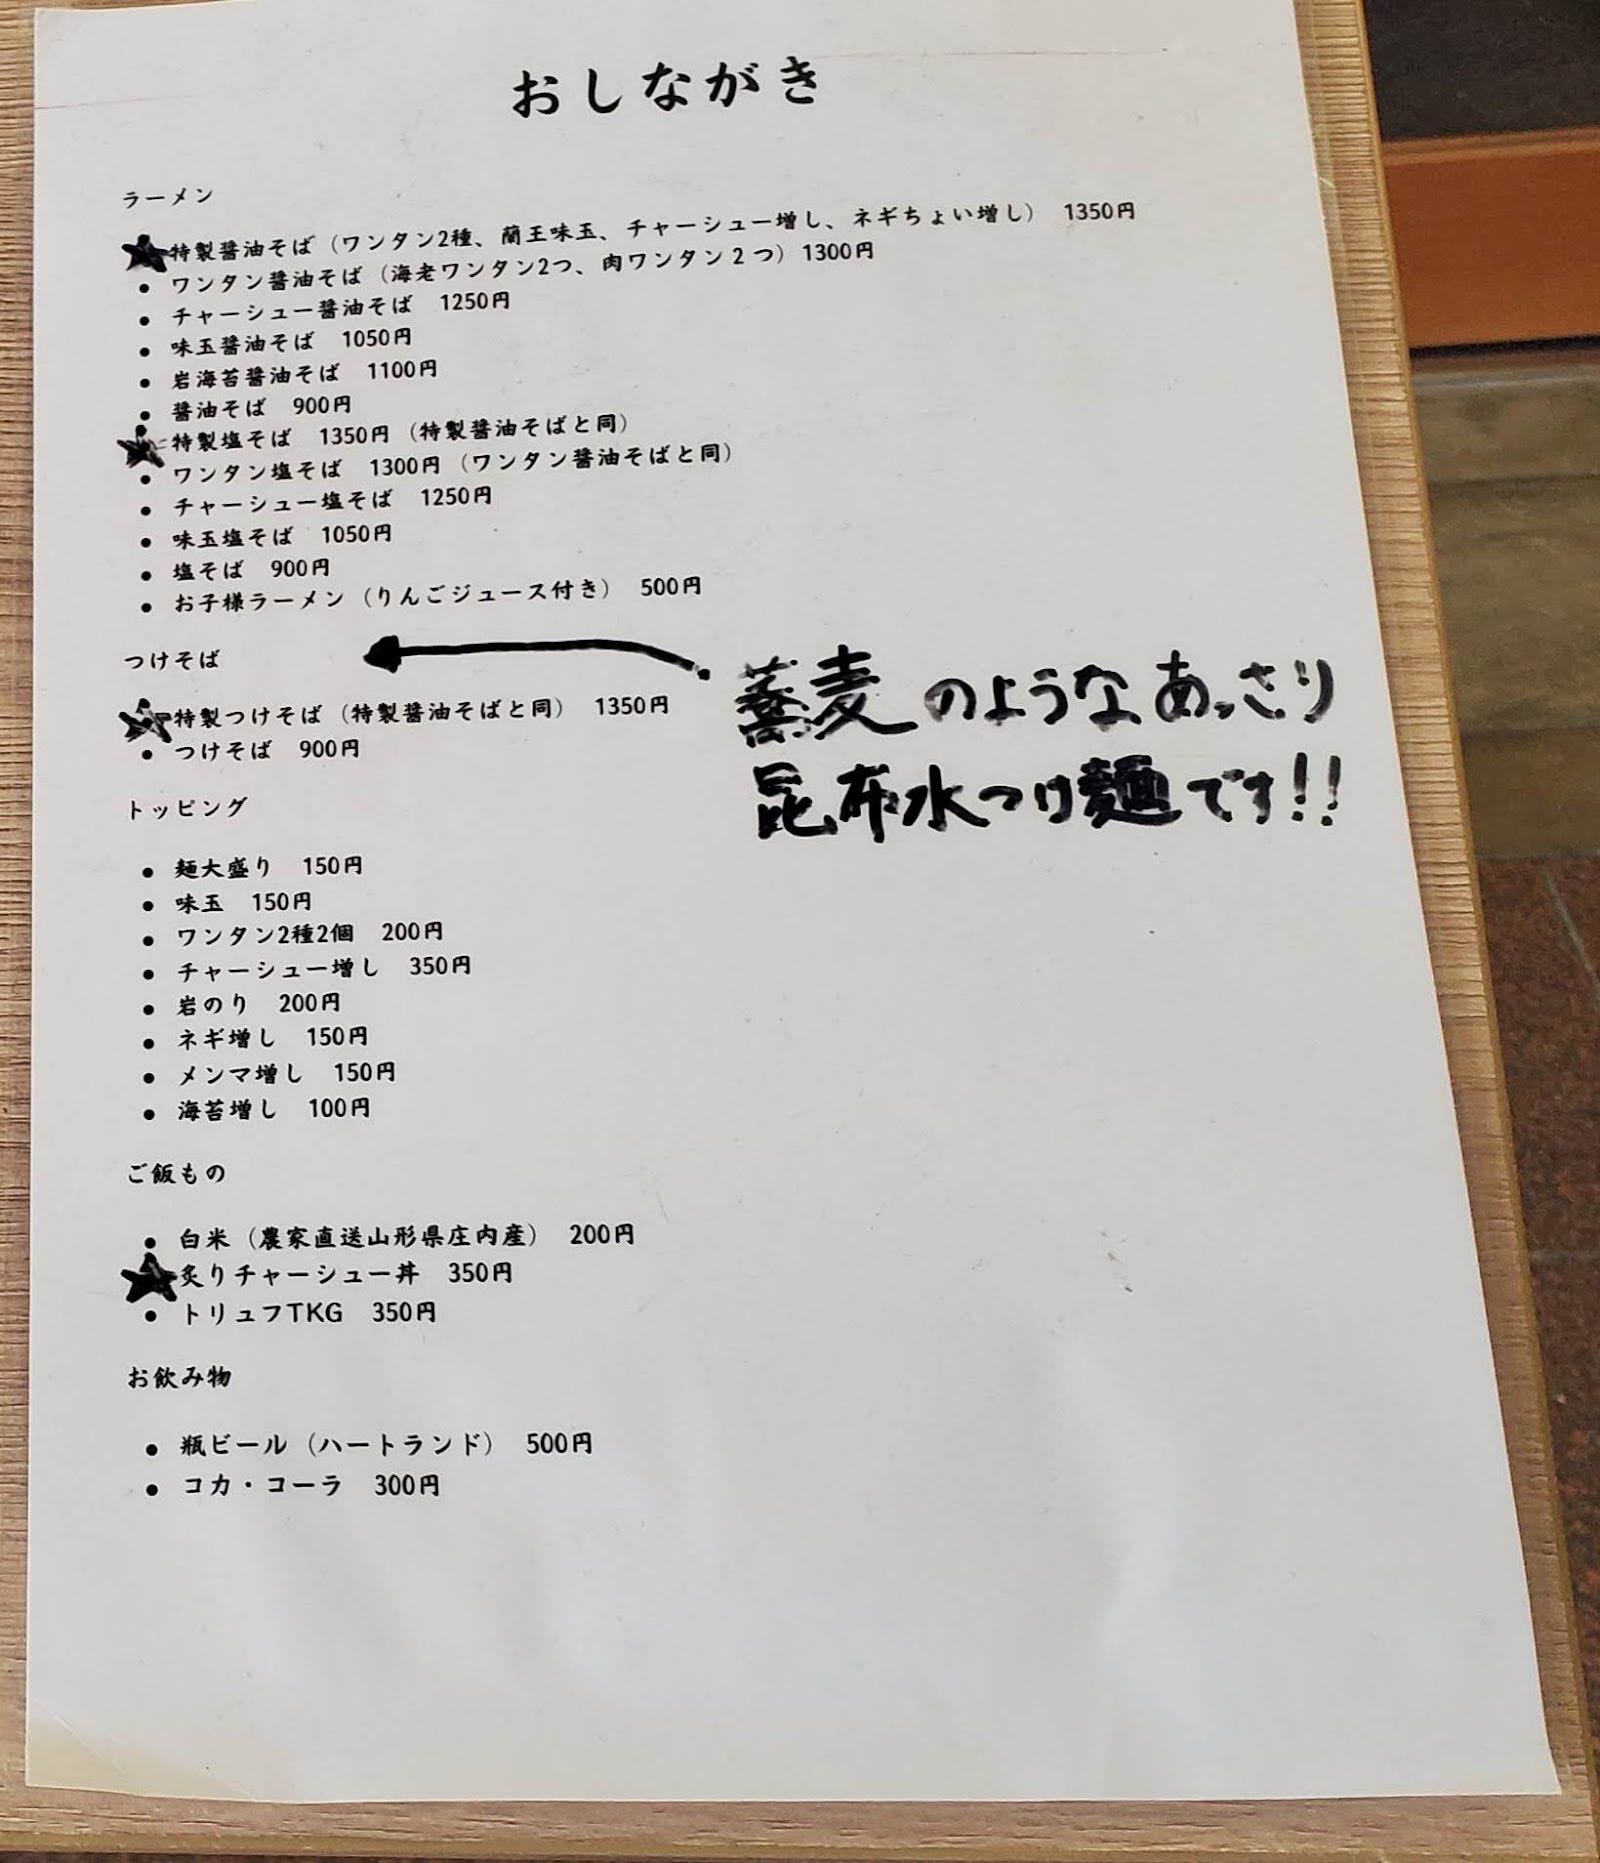 おしながき
ラーメン
★特製醤油そば（ワンタン2種、蘭王味玉、チャーシュー増し、ネギちょい増し） 1350円
● ワンタン醤油そば（海老ワンタン2つ、肉ワンタン２つ）1300円
● チャーシュー醤油そば 1250円
● 味玉醤油そば 1050円
● 岩海苔醤油そば 1100円
● 醤油そば 900円
★特製塩そば 1350円（特製醤油そばと同）
● ワンタン塩そば 1300円（ワンタン醤油そばと同）
● チャーシュー塩そば 1250円
● 味玉塩そば 1050円
● 塩そば 900円
● お子様ラーメン（りんごジュース付き） 500円
つけそば
★特製つけそば（特製醤油そばと同） 1350円
● つけそば 900円
蕎麦のようなあっさり
昆布水つけ麺です!!
トッピング
● 麺大盛り 150円
● 味玉 150円
● ワンタン2種2個 200円
● チャーシュー増し 350円
● 岩のり 200円
● ネギ増し 150円
● メンマ増し 150円
● 海苔増し 100円
ご飯もの
● 白米（農家直送山形県庄内産） 200円
★炙りチャーシュー丼 350円
● トリュフTKG 350円
お飲み物
● 瓶ビール（ハートランド） 500円
● コカ・コーラ 300円